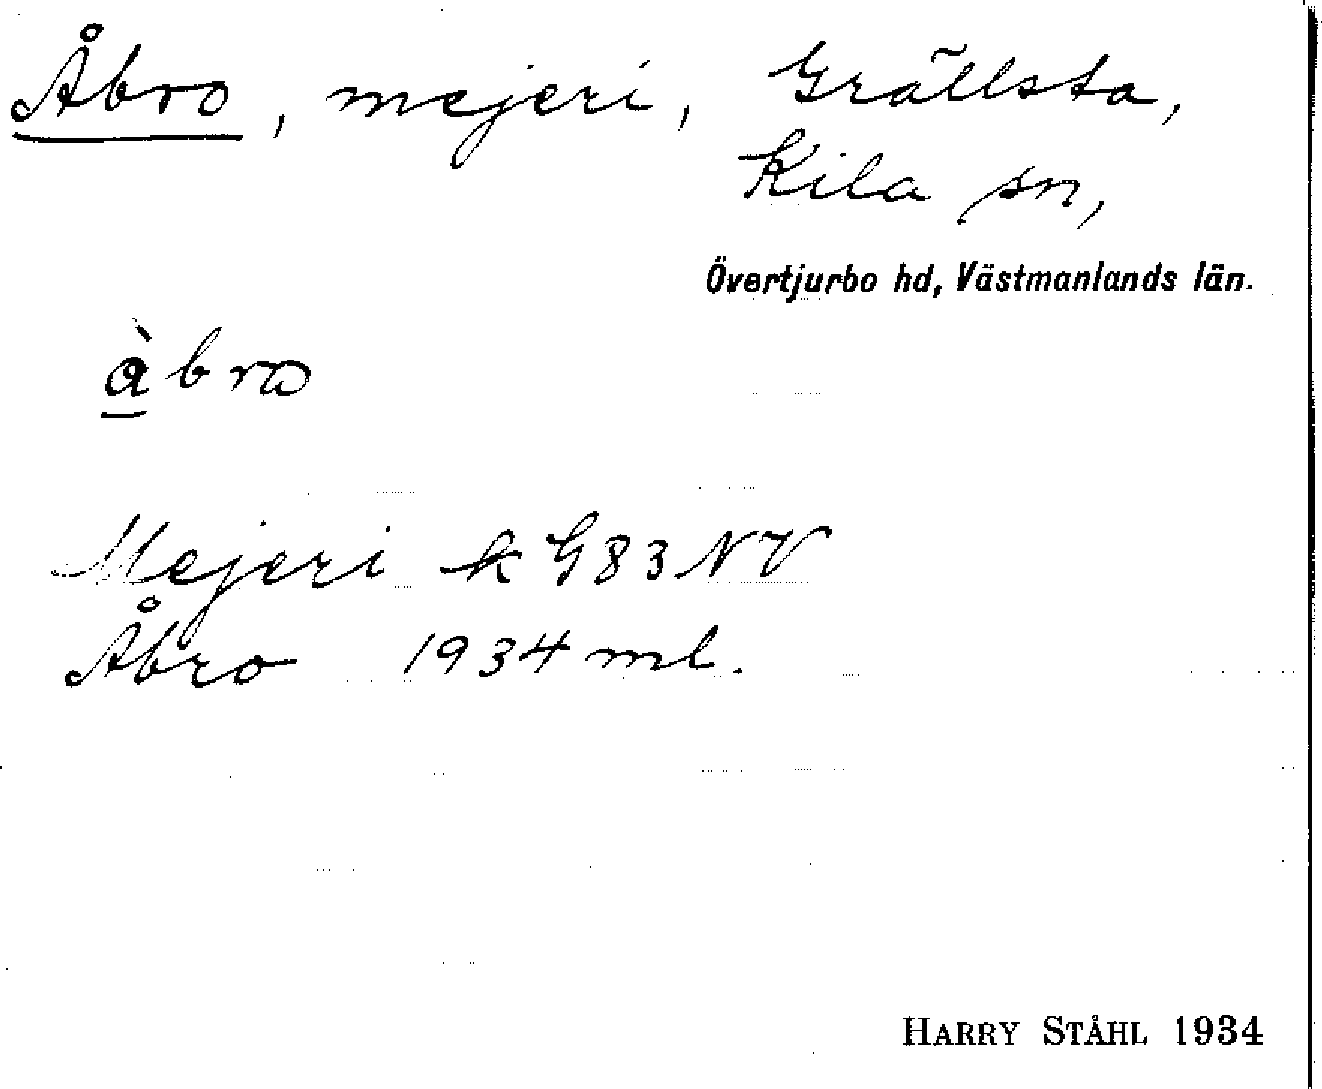 Åbro, mejeri, Grällsta,
Kila sn,
Övertjurbo hd, Västmanlands län.
àbrω
Mejeri k G83NV
Åbro 1934 ml.
HARRY STÅHL 1934